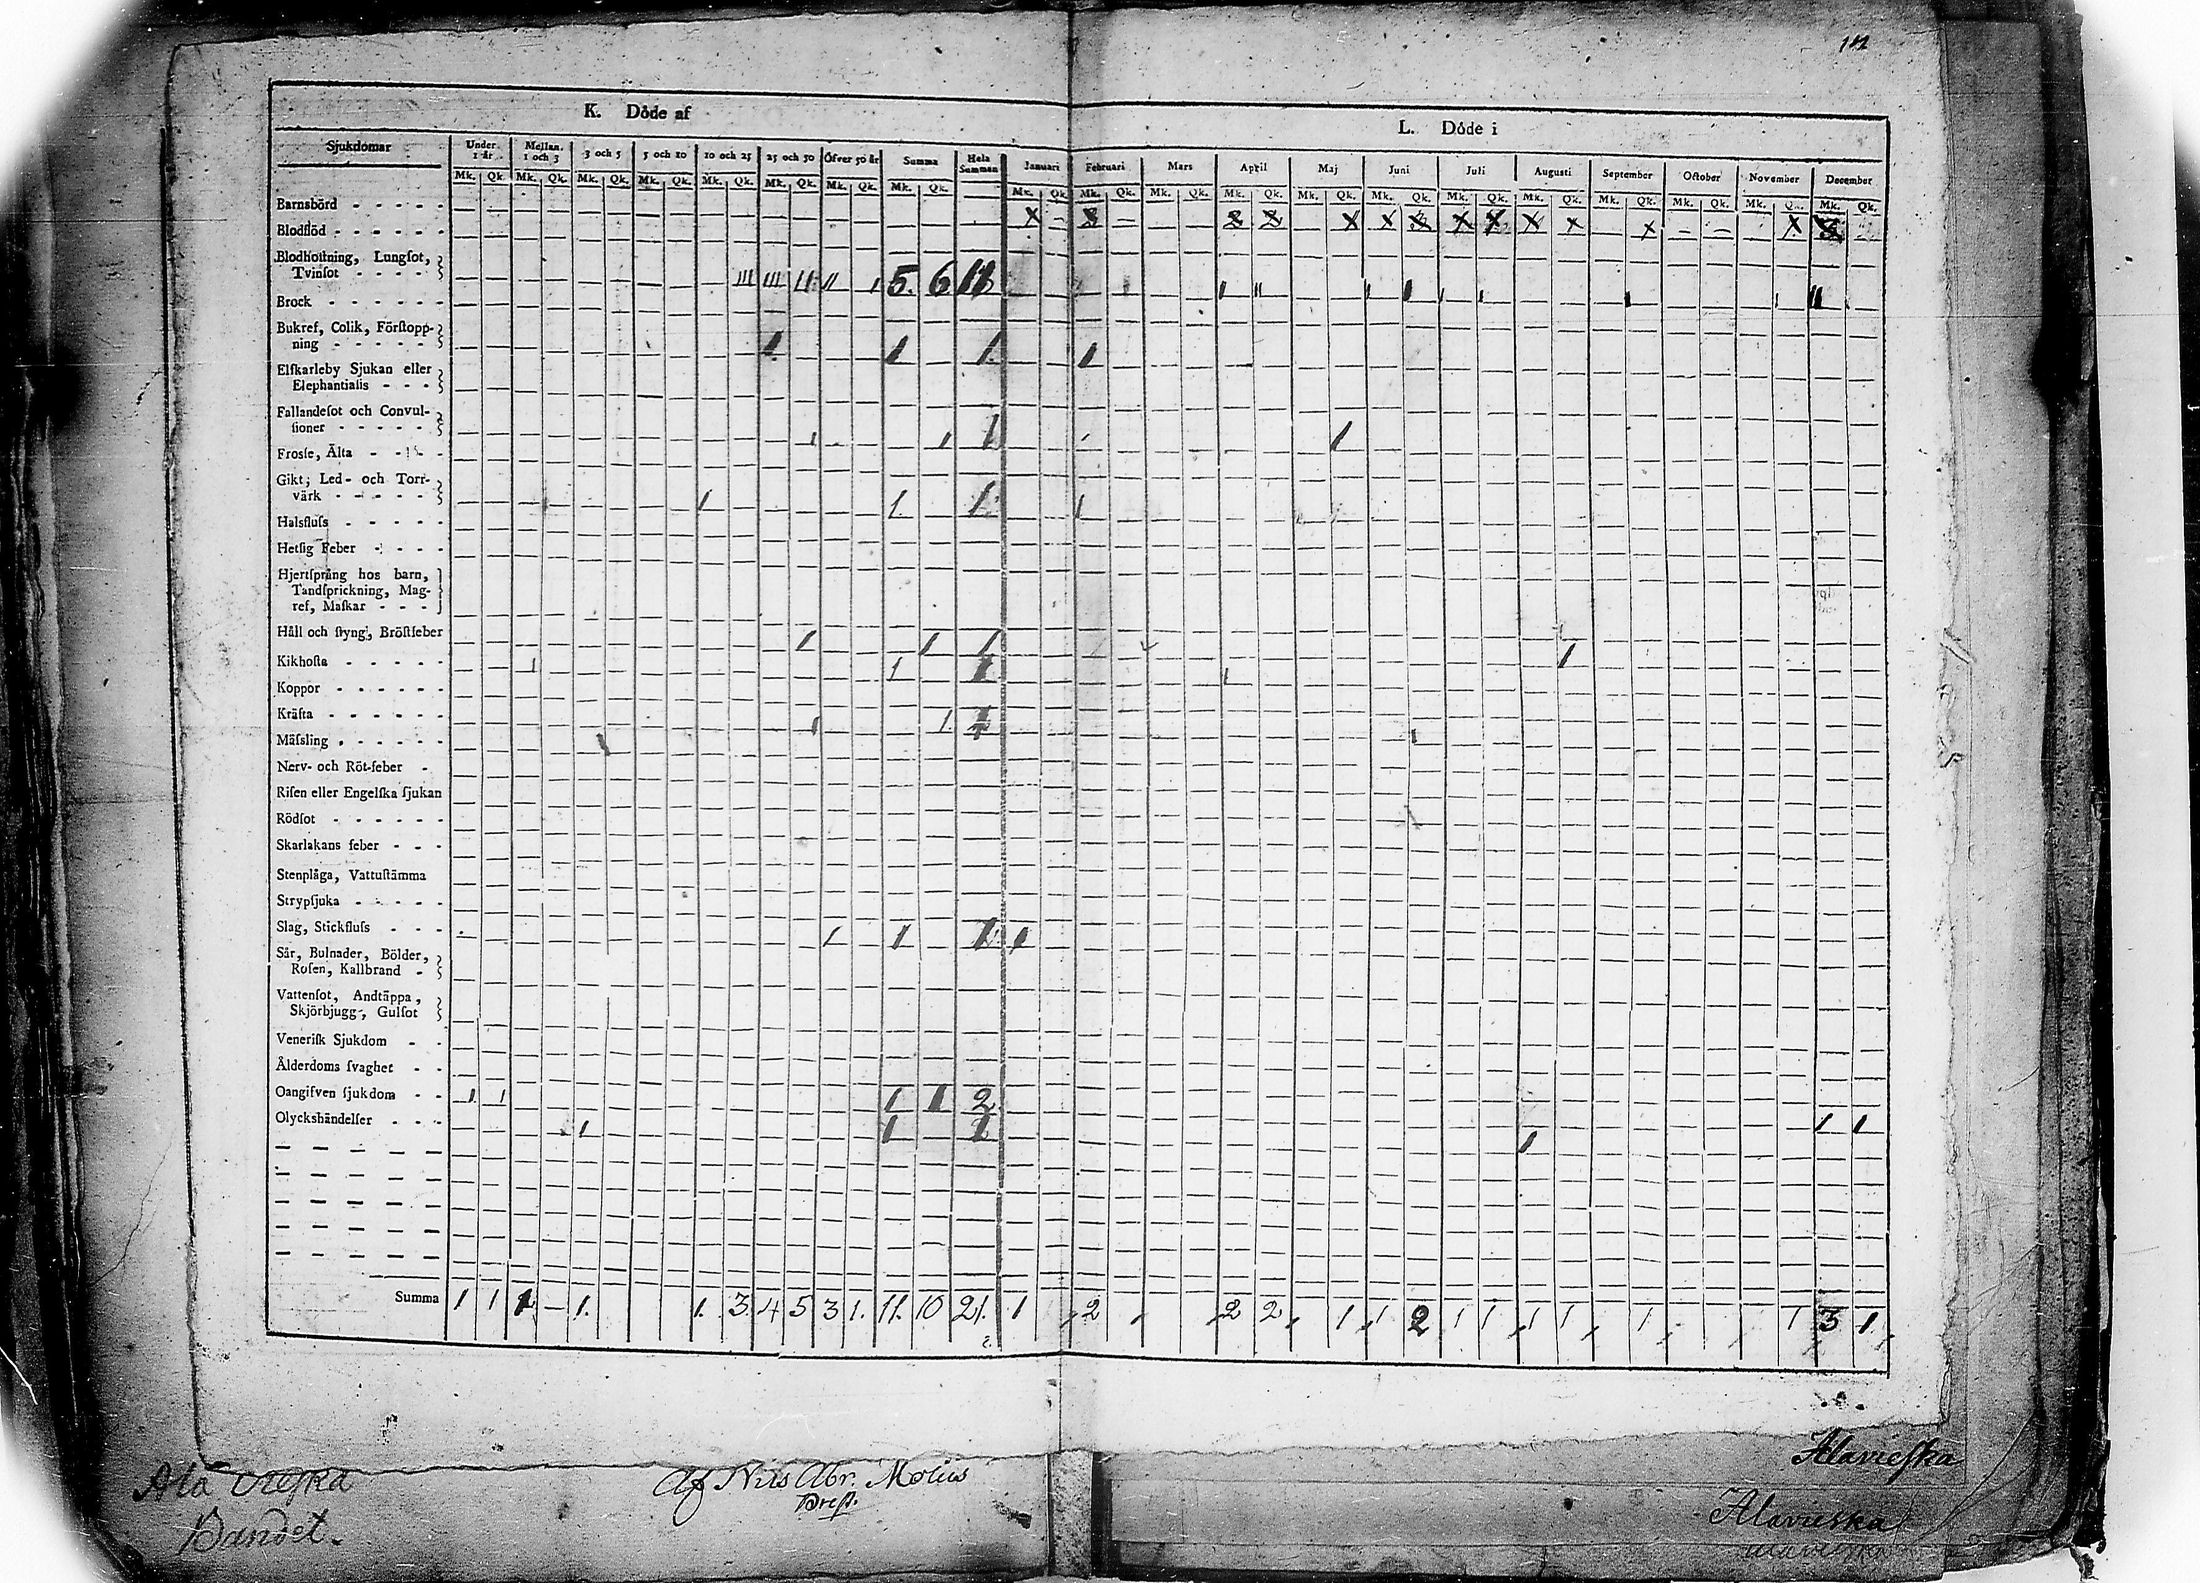 K. Döde af
L. Döde i
Sjukdomar Under 1 år Mellan 1 och 3 3 och 5 5 och 10 10 och 25 25 och 50 Öfver 50 år Summa Hela Summan Januari Februari Mars April Maj Juni Juli Augusti September October November December
Mk. Qk. Mk. Qk. Mk. Qk. Mk. Qk. Mk. Qk. Mk. Qk. Mk. Qk. Mk. Qk. Mk. Qk. Mk. Qk. Mk. Qk. Mk. Qk. Mk. Qk. Mk. Qk. Mk. Qk. Mk. Qk. Mk. Qk. Mk. Qk. Mk. Qk. Mk. Qk.
Barnsbörd
Blodflöd
Blodhostning, Lungſot,
Tvinſot III III II II 1 5. 6 11 1 II 1 1 1 1 1 1 II
Brock
Bukref, Colik, Förſtopp-
ning 1 1 1 1
Elſkarleby Sjukan eller
Elephantiaſis
Fallandeſot och Convul-
ſioner 1 1 1 1
Frosſe, Älta
Gikt, Led- och Torr-
värk 1 1 1 1
Halsfluſs
Hetſig Feber
Hjertſprång hos barn,
Tandſprickning, Mag-
ref, Maſkar
Håll och ſtyng, Bröſtfeber 1 1 1 1
Kikhoſta 1 1 1 1
Koppor
Kräfta 1 1 1 1
Mäſsling
Nerv- och Röt-feber
Riſen eller Engelſka ſjukan
Rödſot
Skarlakans feber
Stenplåga, Vattuſtämma
Strypſjuka
Slag, Stickfluſs 1 1 1 1
Sår, Bulnader, Bölder,
Roſen, Kallbrand
Vattenſot, Andtäppa,
Skjörbjugg, Gulſot
Veneriſk Sjukdom
Ålderdoms ſvaghet
Oangifven ſjukdom 1 1 1 1 2 1 1
Olyckshändelſer 1 1 1 1
Summa 1 1 1 — 1. 1. 3. 4 5 3 1. 11. 10 21. 1 2 2 2 1 1 2 1 1 1 1 1 1 3 1.
Ala vieſka
Bandet.
Af Nils Abr. Molius
Preſt.
Alavieſka
Alavieska